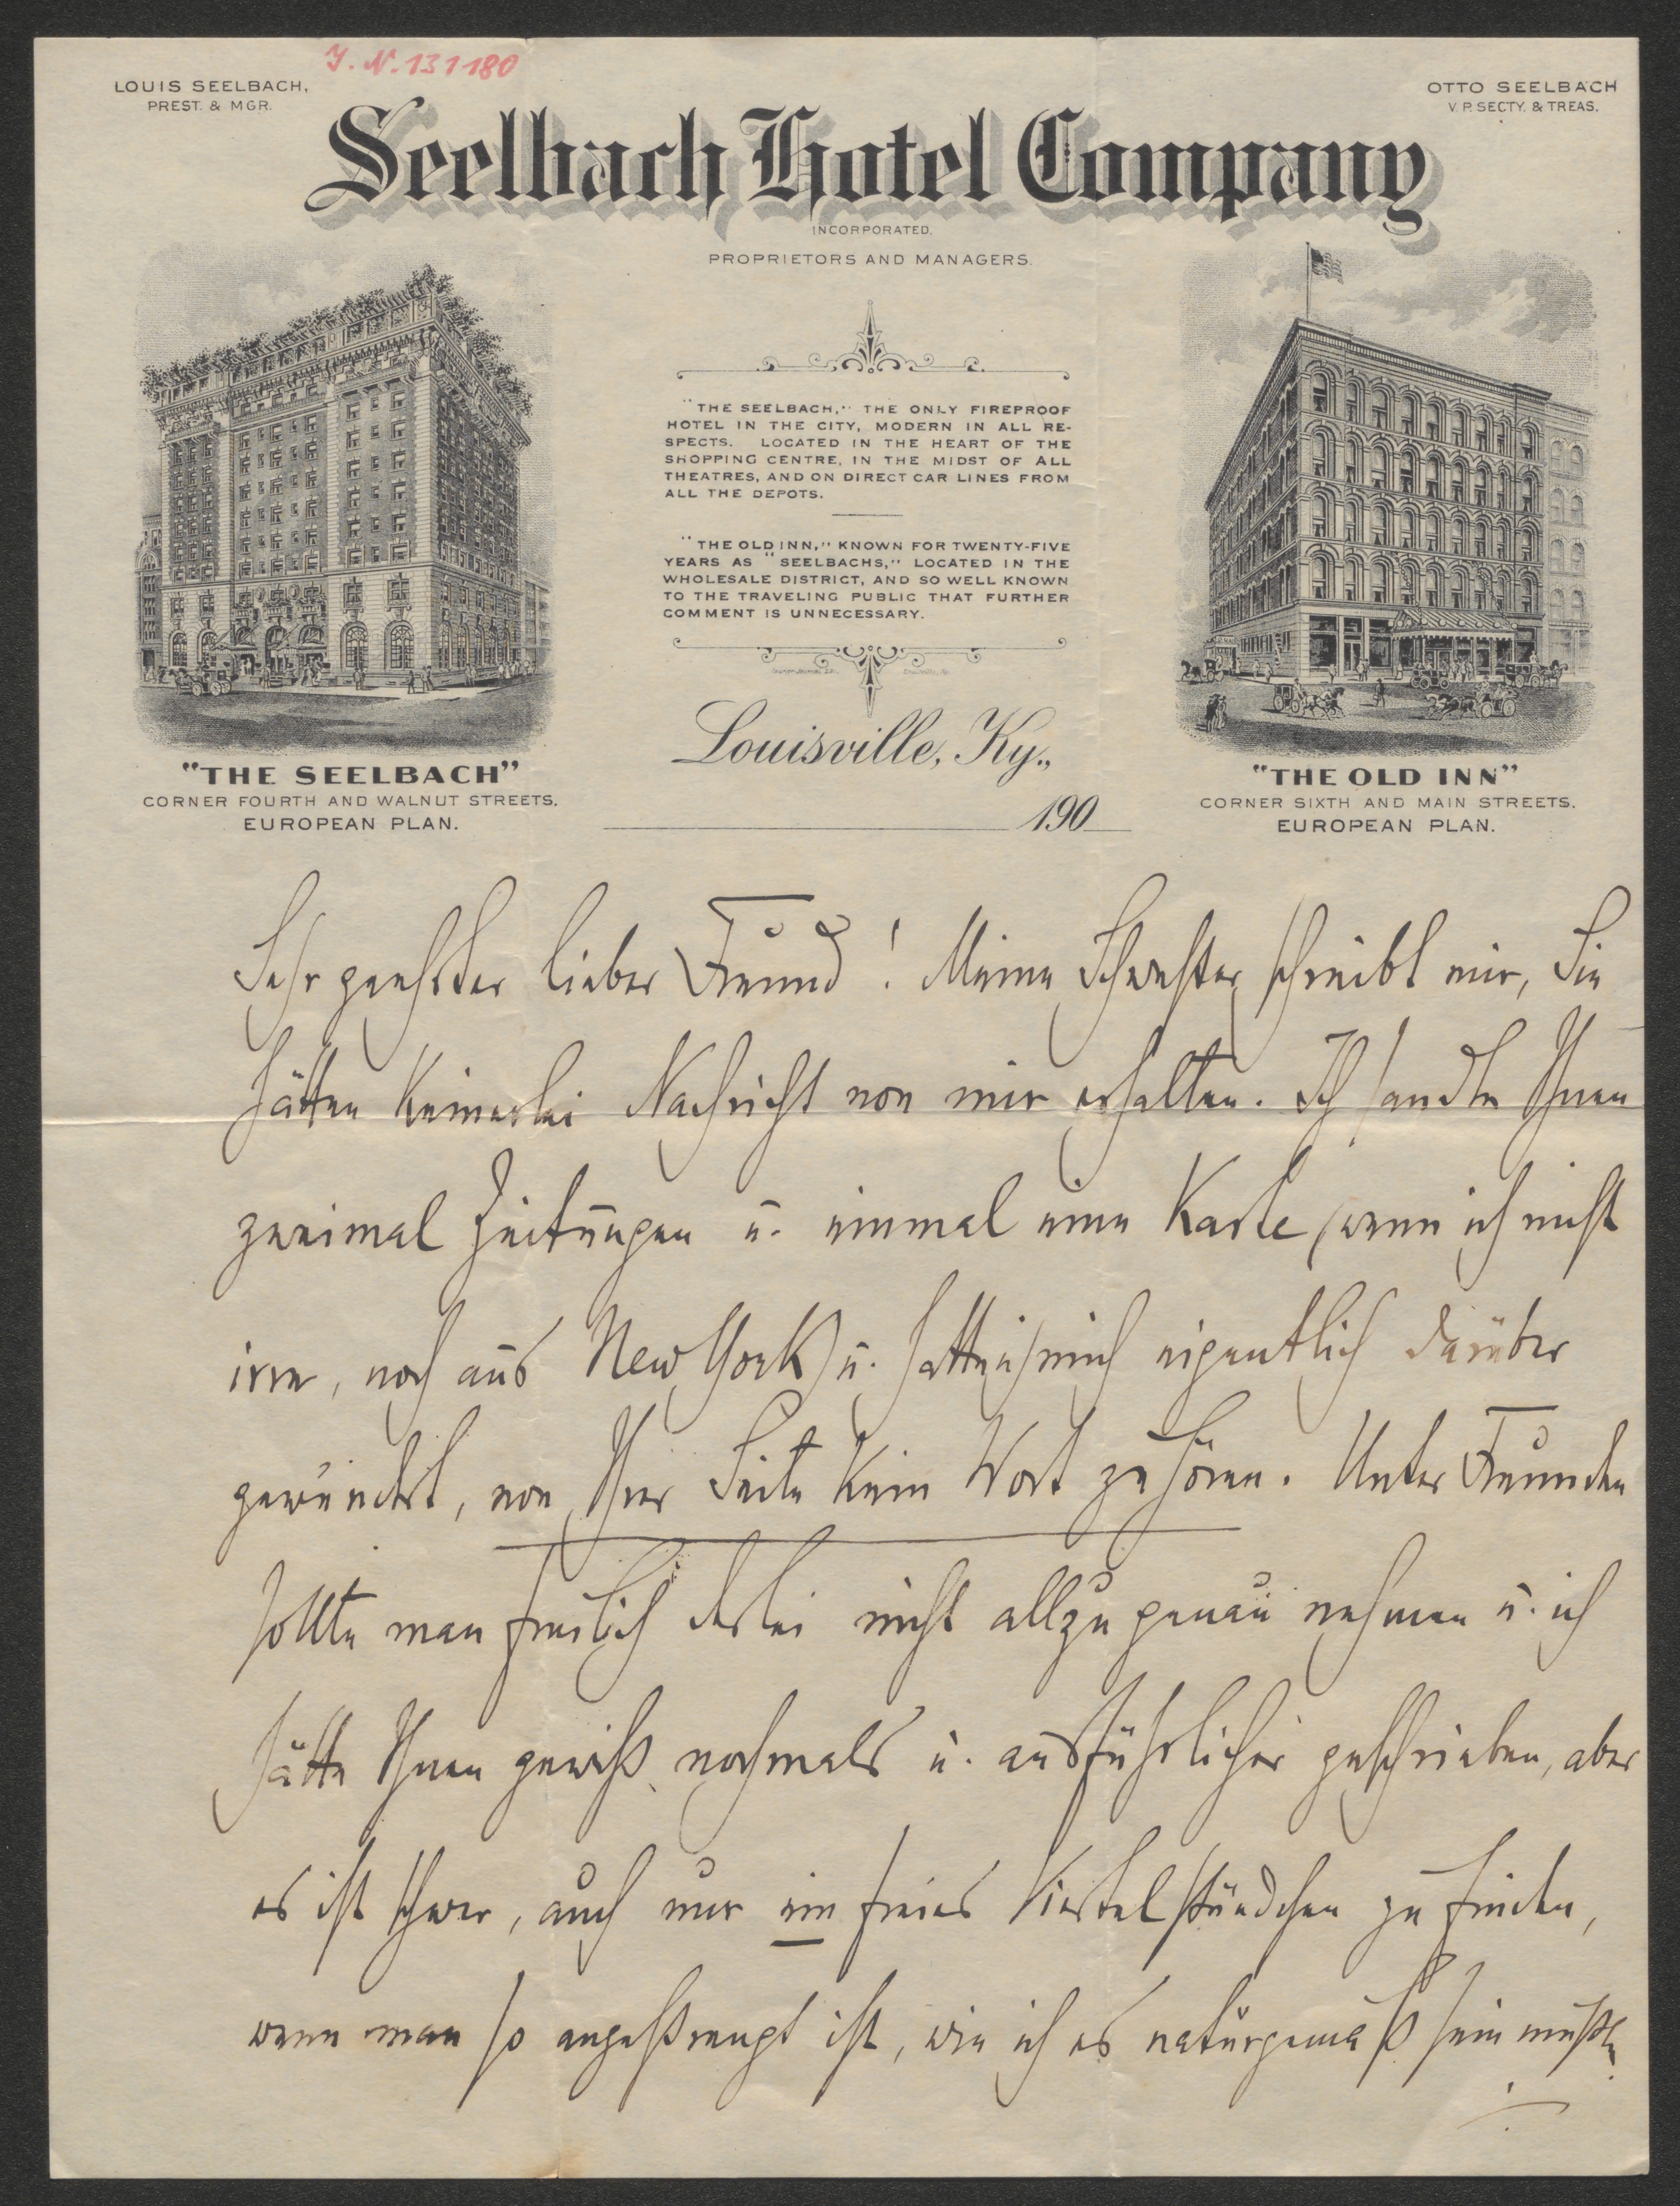 J. N. 131180
LOUIS SEELBACH,
PREST. & MGR.
OTTO SEELBACH
V. P. SECTY. & TREAS.
Seelbach Hotel Company
INCORPORATED.
PROPRIETORS AND MANAGERS.
"THE SEELBACH," THE ONLY FIREPROOF
HOTEL IN THE CITY, MODERN IN ALL RE-
SPECTS. LOCATED IN THE HEART OF THE
SHOPPING CENTRE, IN THE MIDST OF ALL
THEATRES, AND ON DIRECT CAR LINES FROM
ALL THE DEPOTS.
"THE OLD INN," KNOWN FOR TWENTY-FIVE
YEARS AS "SEELBACHS," LOCATED IN THE
WHOLESALE DISTRICT, AND SO WELL KNOWN
TO THE TRAVELING PUBLIC THAT FURTHER
COMMENT IS UNNECESSARY.
"THE SEELBACH"
CORNER FOURTH AND WALNUT STREETS.
EUROPEAN PLAN.
Louisville, Ky.,
190
"THE OLD INN"
CORNER SIXTH AND MAIN STREETS.
EUROPEAN PLAN.
Sehr geehrter lieber Freund! Meine Schwester schreibt mir, Sie
hätten keinerlei Nachricht von mir erhalten. Ich sandte Ihnen
zweimal Zeitungen u. einmal eine Karte (wenn ich nicht
irre, noch aus New York) u. hatte ich mich eigentlich darüber
gewundert, von Ihrer Seite kein Wort zu hören. Unter Freunden
sollte man freilich derlei nicht allzu genau nehmen u. ich
hätte Ihnen gewiß nochmals u. ausführlicher geschrieben, aber
es ist schwer, auch nur ein freies Viertelstündchen zu finden,
wenn man so angestrengt ist, wie ich es naturgemäß sein mußte.